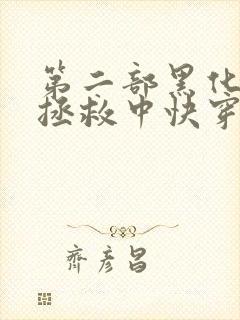 第二部黑化
拯救中快穿
齐彦昌